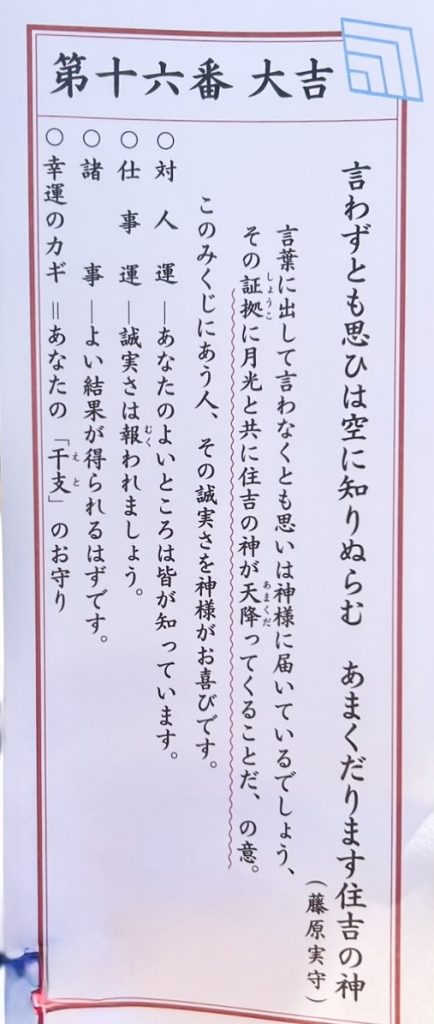 第十六番 大吉
言わずとも思ひは空に知りぬらむ　あまくだります住吉の神
（藤原実守）
言葉に出して言わなくとも思いは神様に届いているでしょう、
その証拠に月光と共に住吉の神が天降ってくることだ、の意。
しょうこ
あまくだ
このみくじにあう人、その誠実さを神様がお喜びです。
○対人運―あなたのよいところは皆が知っています。
○仕事運―誠実さは報われましょう。
むく
○諸事―よい結果が得られるはずです。
○幸運のカギ＝あなたの「干支」のお守り
えと